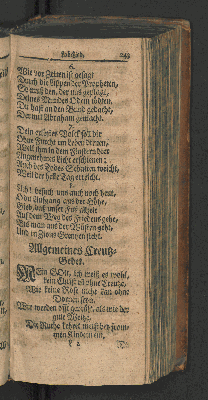 Lobgesang. 243
6.
Wie vor Zeiten ist gesagt
Durch die Lippen der Propheten,
So muß den, der uns geplagt,
Deines Mundes Odem tödten.
Du hast an den Bund gedacht,
Den mit Abraham gemacht.
7.
Dein erlößtes Volck soll dir
Ohne Furcht im Leben dienen,
Weil ihm in dem Finstern hier
Angenehmes Licht erschienen;
Auch des Todes Schatten weicht,
Weil der helle Tag erreicht.
8.
Licht besuch uns auch noch heut,
O du Aufgang aus der Höhe,
Gieb, daß unser Fuß allzeit
Auf dem Weg des Friedens gehe,
Bis man aus der Wüsten geht,
Und in Zions Grentzen steht.
Allgemeines Creutz-
Gebet.
MEin GOtt, ich weiß es wohl,
kein Christ ist ohne Creutze,
Wie keine Rose nicht kan ohne
Dornen seyn.
Wir werden oft gesäubt, als wie der
gute Weitze,
Die Ruthe kehret meist bey from-
men Kindern ein.
L 2